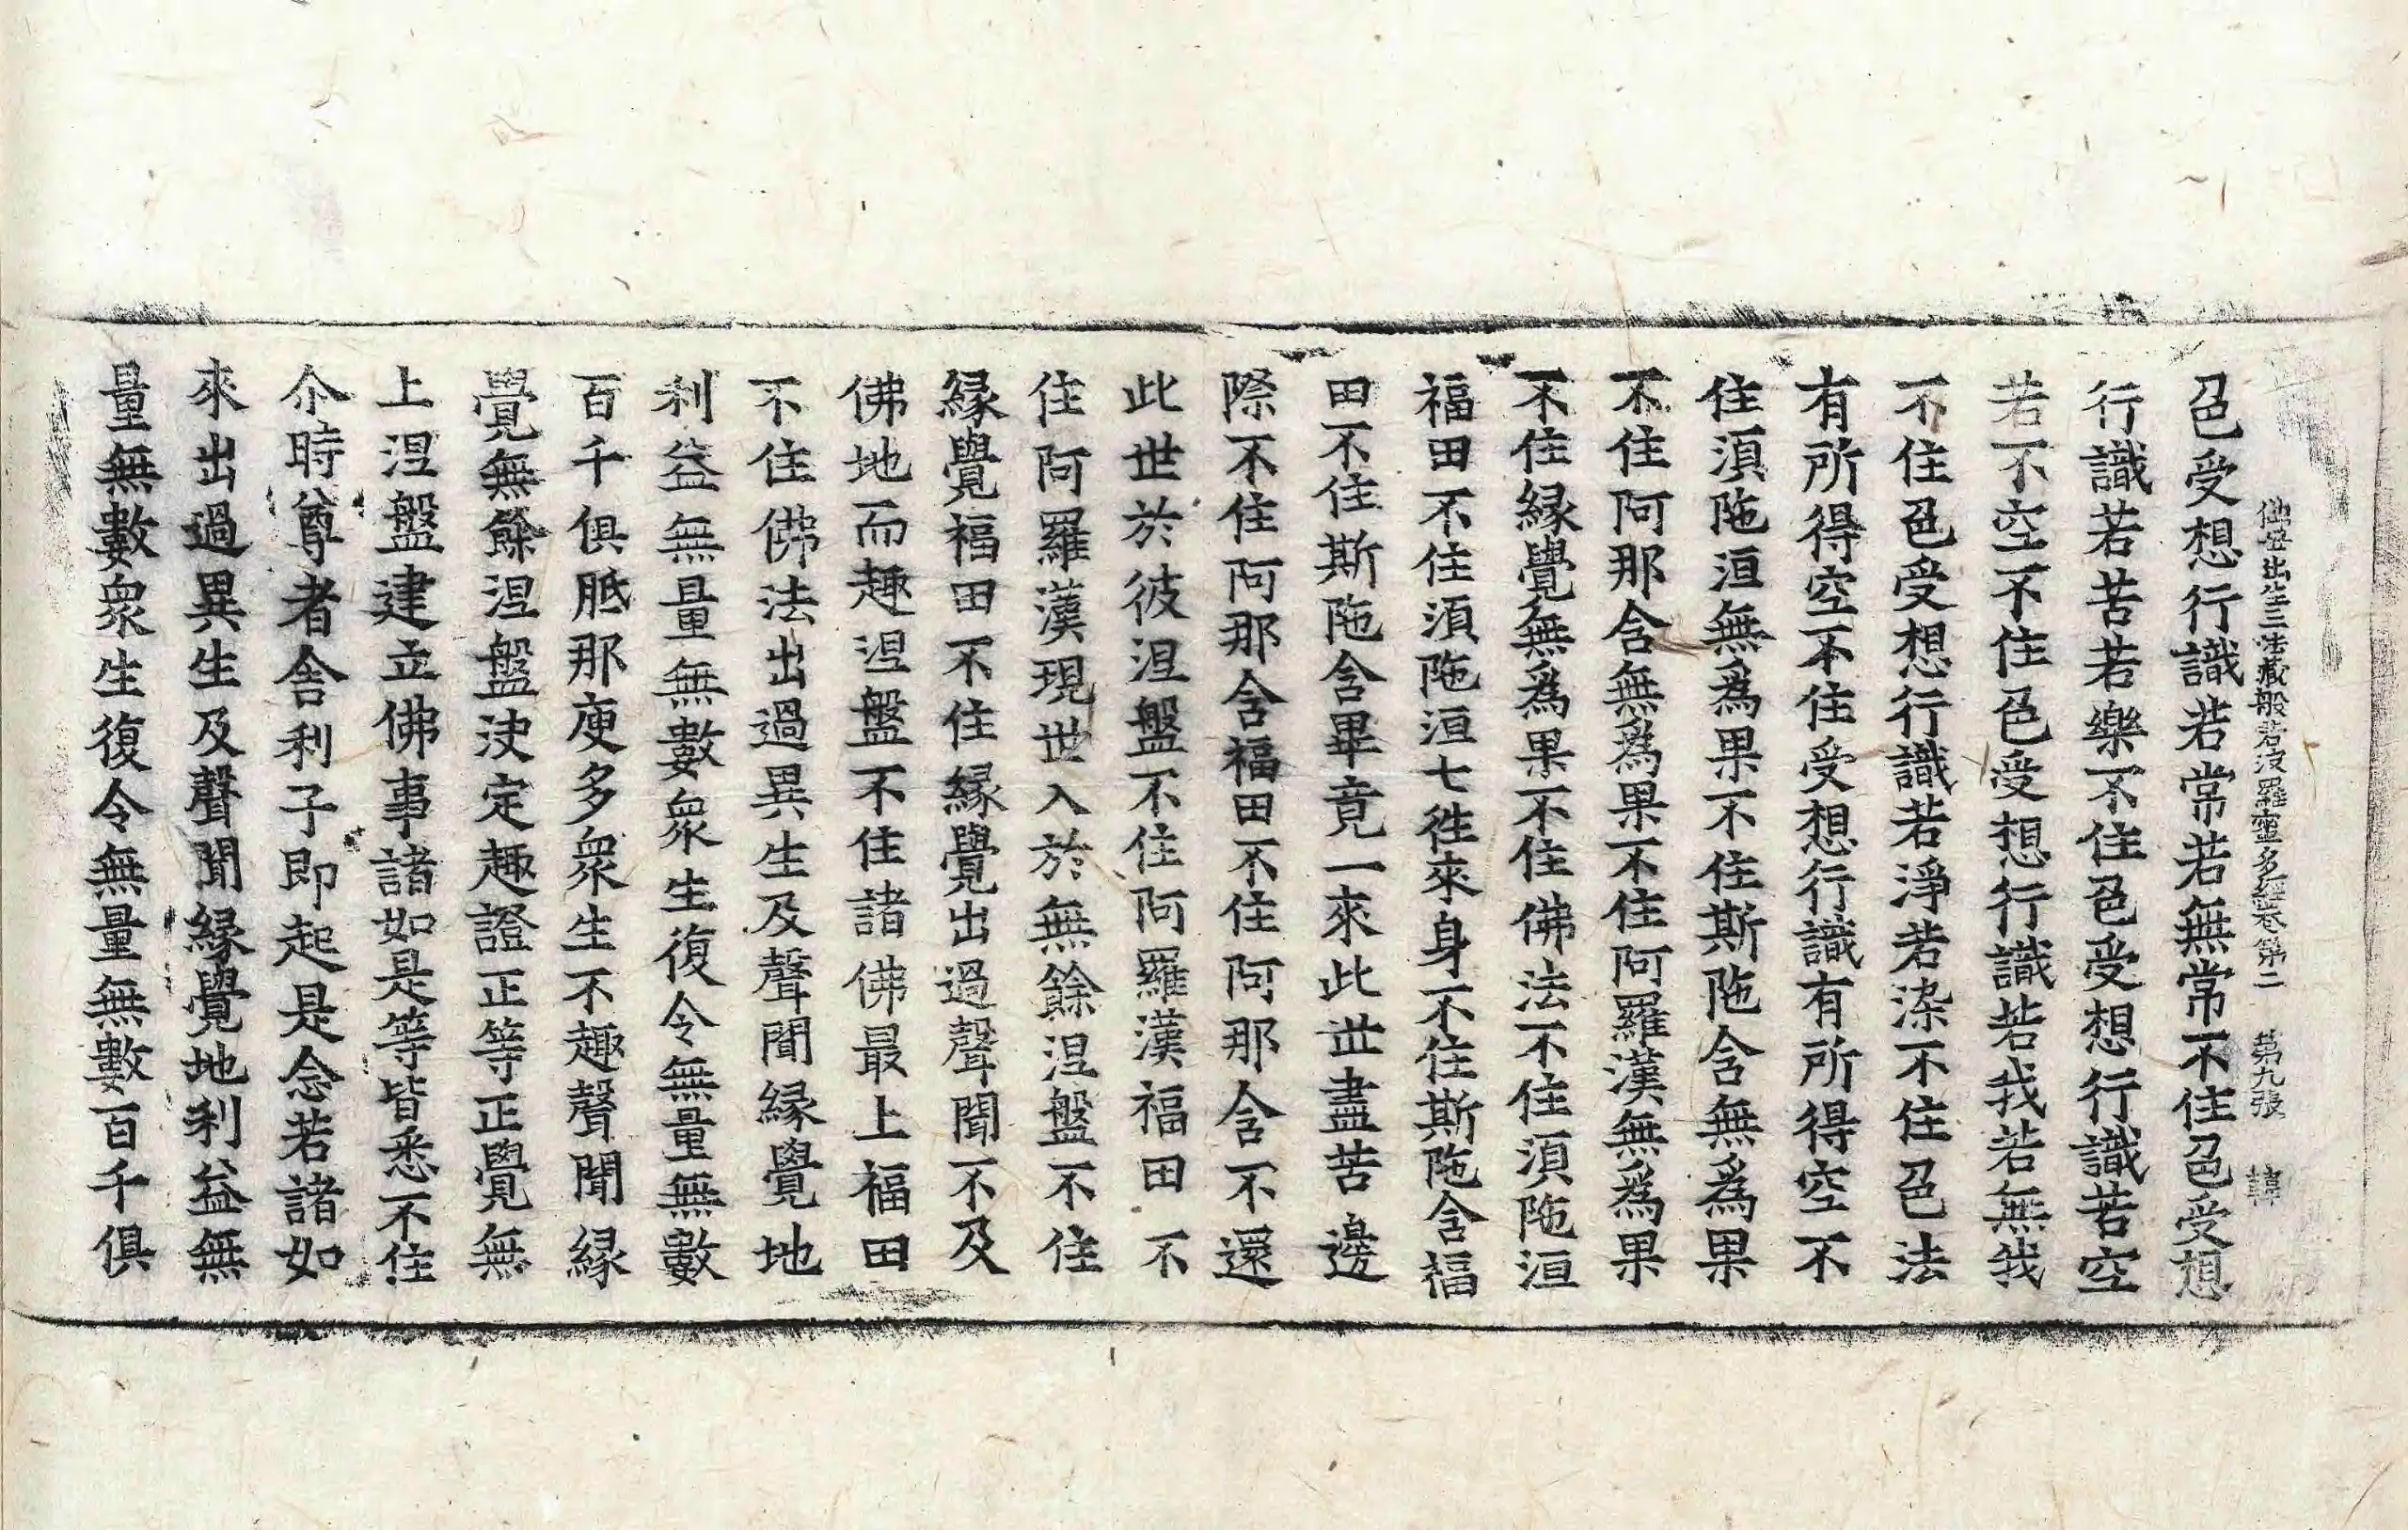 佛母出生三法藏般若波羅蜜多經卷第二 第九張 韓
色受想行識若常若無常不住色受想
行識若苦若樂不住色受想行識若空
若不空不住色受想行識若我若無我
不住色受想行識若淨若染不住色法
有所得空不住受想行識有所得空不
住湏陁洹無爲果不住斯陁含無爲果
不住阿那含無爲果不住阿羅漢無爲果
不住縁覺無爲果不住佛法不住湏陁洹
福田不住湏陁洹七徃來身不住斯陁含福
田不住斯陁含畢竟一來此世盡苦邊
際不住阿那含福田不住阿那含不還
此世於彼涅盤不住阿羅漢福田不
住阿羅漢現世入於無餘涅盤不住
縁覺福田不住縁覺出過聲聞不及
佛地而趣涅盤不住諸佛最上福田
不住佛法出過異生及聲聞縁覺地
利益無量無數衆生復令無量無數
百千俱胝那庾多衆生不趣聲聞縁
覺無餘涅盤決定趣證正等正覺無
上涅盤建立佛事諸如是等皆悉不住
尒時尊者舍利子即起是念若諸如
來出過異生及聲聞縁覺地利益無
量無數衆生復令無量無數百千俱